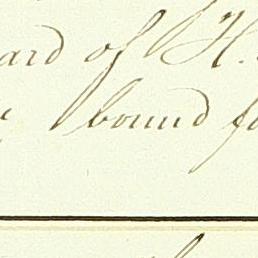 ard of H.
bound fo